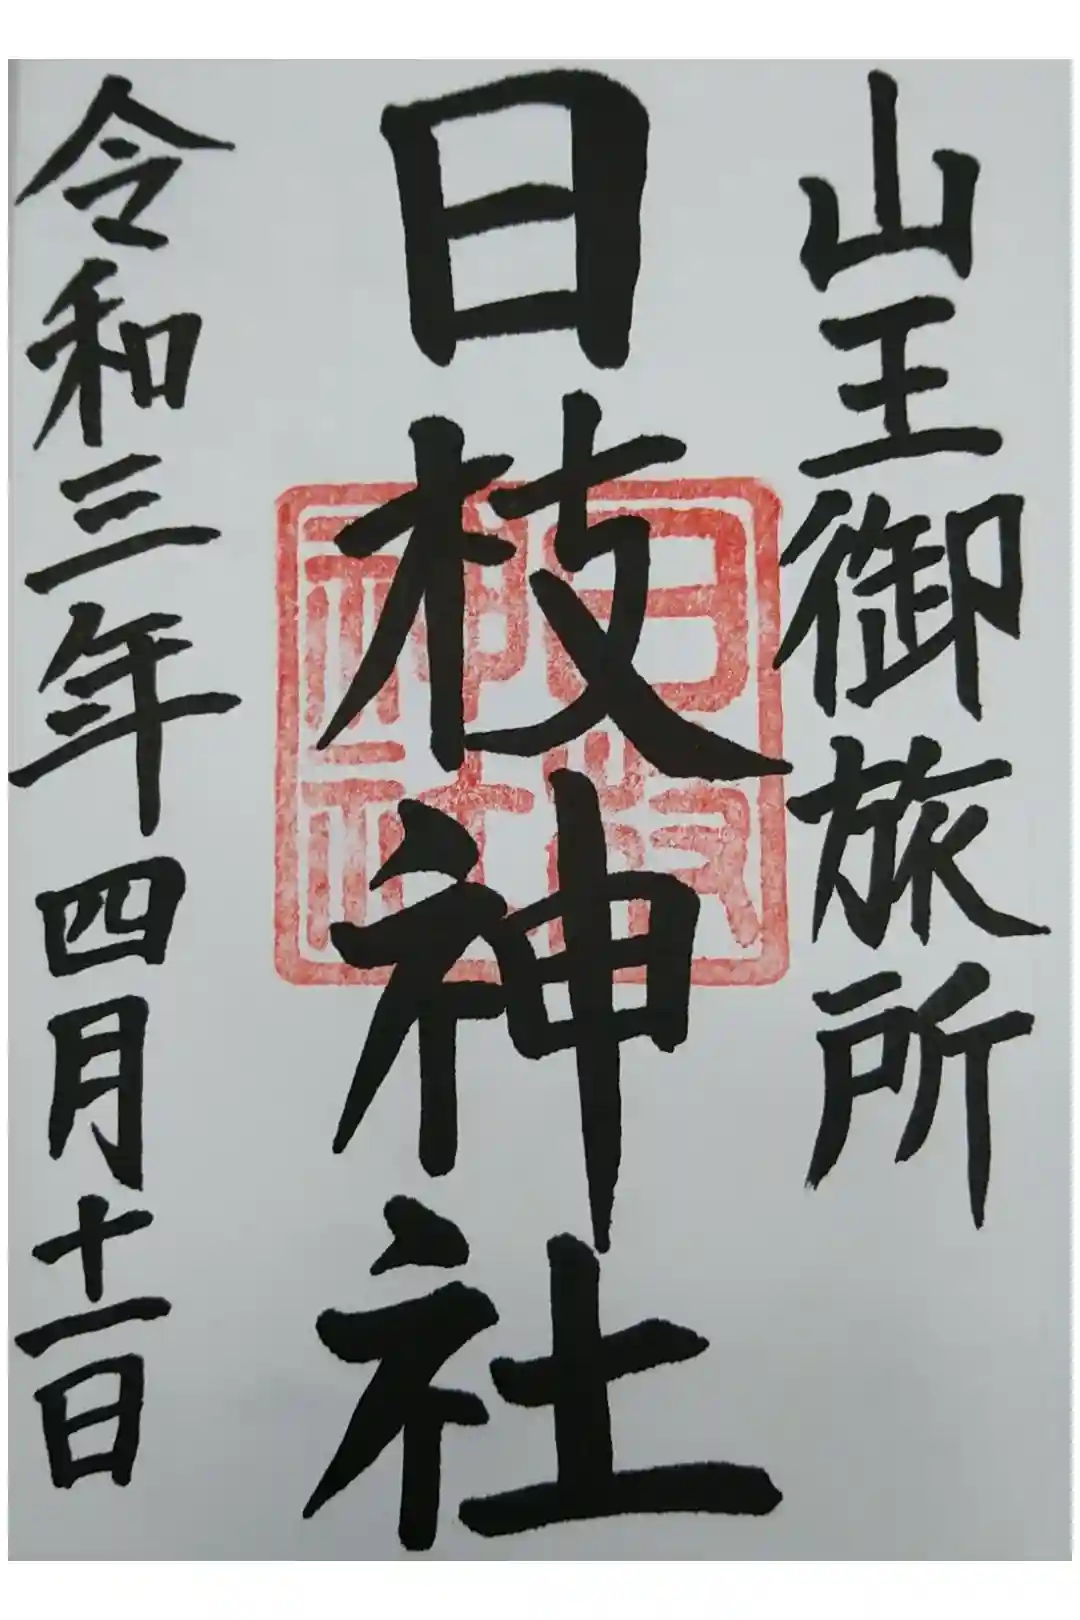 山王御旅所
日枝神社
日枝神社
令和三年四月十一日